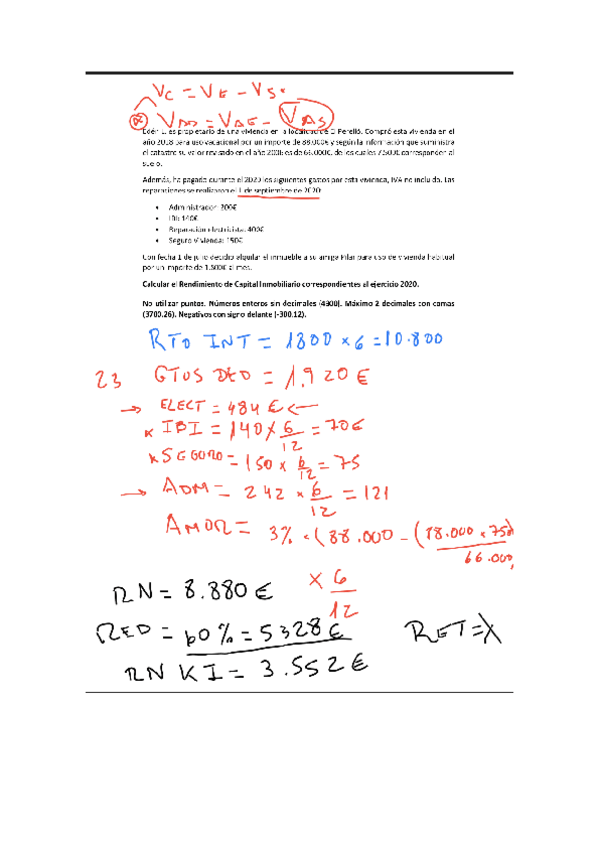 Vc = VE - Vs.
VAD = VAE - VAS
es propietario de una vivienda en la localidad de El Perelló. Compró esta vivienda en el
año 2018 para uso vacacional por un importe de 88.000€ y según la información que suministra
el catastro su valor revisado en el año 2006 es de 66.000€, de los cuales 7500€ corresponden al
suelo.
Además, ha pagado durante el 2020 los siguientes gastos por esta vivienda, IVA no incluido. Las
reparaciones se realizaron el 1 de septiembre de 2020
• Administrador: 200€
• IBI: 140€
• Reparación electricista: 400€
• Seguro vivienda: 150€
Con fecha 1 de julio decidió alquilar el inmueble a su amiga Pilar para uso de vivienda habitual
por un importe de 1.800€ al mes.
Calcular el Rendimiento de Capital Inmobiliario correspondientes al ejercicio 2020.
No utilizar puntos. Números enteros sin decimales (4300). Máximo 2 decimales con comas
(3700,26). Negativos con signo delante (-300,12).
RTO INT = 1800 x 6 = 10.800
23 GTOS DED = 1.920€
→ ELECT = 484 € ←
x IBI = 140 x 6/12 = 70€
x SEGURO = 150 x 6/12 = 75
→ ADM = 242 x 6/12 = 121
AMOR = 3% x (88.000 - (88.000 x 7500/66.000)
x 6/12
RN = 8.880 €
RED = 60% = 5328€ RET = X
RN KI = 3.552€